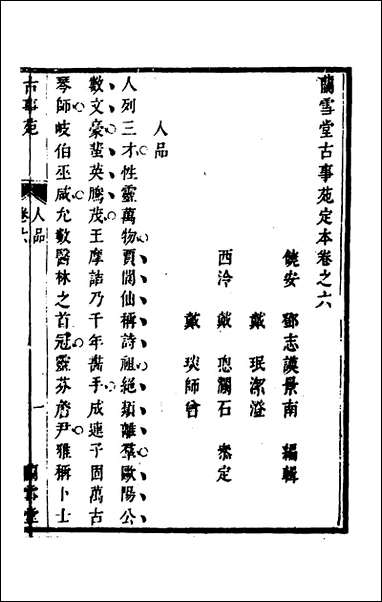 蘭雪堂古事苑定本卷之六
饒安 鄧志謨景南 編輯
戴 珉潔溢
西泠 戴 璁瀾石 叅定
戴 琰師曾
人品
人列三才性靈萬物賈閬仙稱詩祖絕類離羣歐陽公
數文豪蜚英騰茂王摩詰乃千年畫手成連子固萬古
琴師岐伯巫咸允數醫林之首冠靈芬詹尹雅稱卜士
古事苑
卷六
人品
一
蘭雪堂